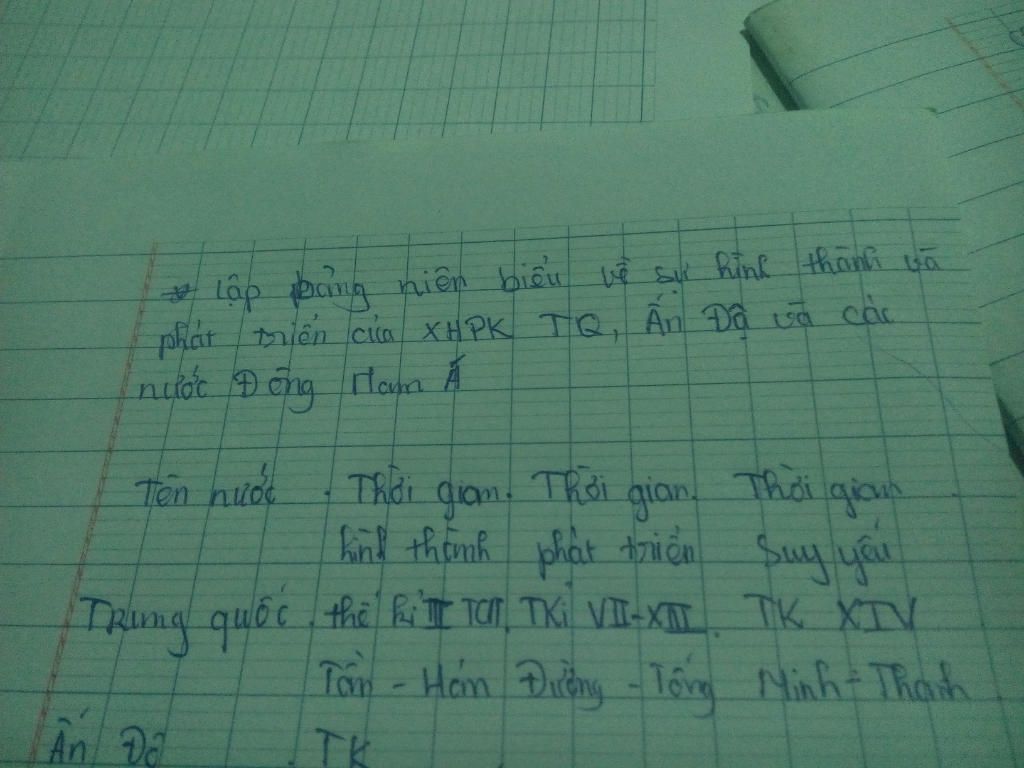 lập bảng niên biểu về sự hình thành và
phát triển của XHPK TQ, Ấn Độ và các
nước Đông Nam Á
Tên nước . Thời gian. Thời gian. Thời gian
hình thành phát triển Suy yếu
Trung quốc . thế kỉ III TCN. TKỉ VII-XIII. TK XIV
Tần - Hán Đường - Tống Minh - Thanh
Ấn Độ . TK